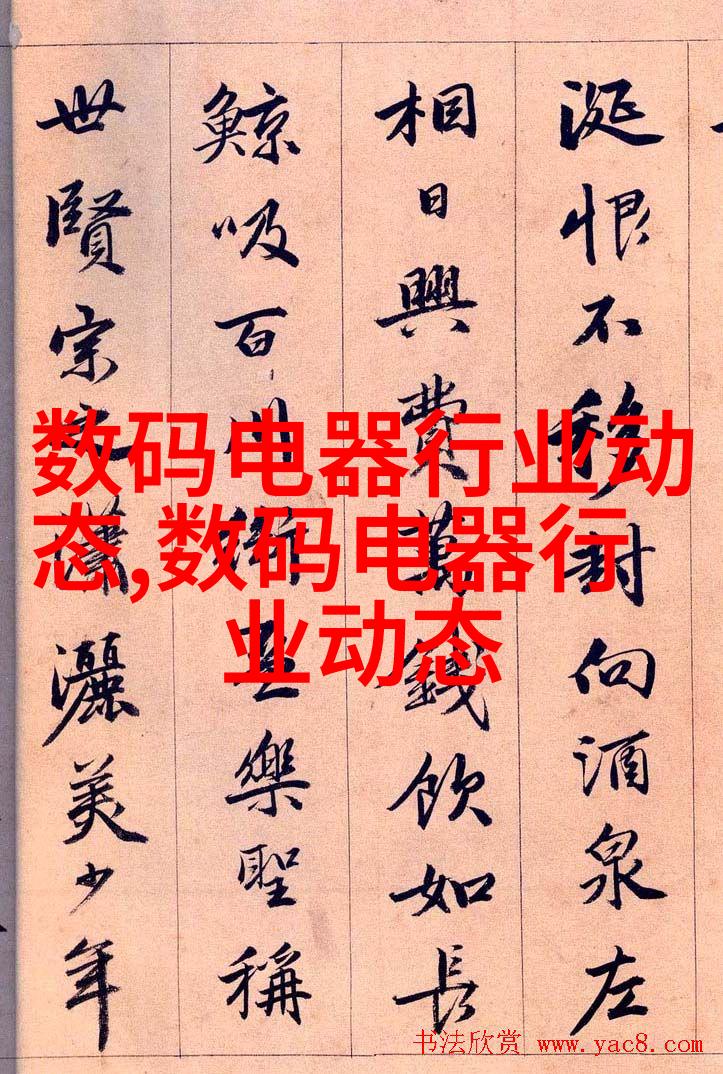 涎恨不移封向酒泉左
相日興費萬錢飲如長
鯨吸百川銜盃樂聖稱
世賢宗之瀟灑美少年
数码电器行业动
态,数码电器行
业动态
书法欣赏 www.yac8.com